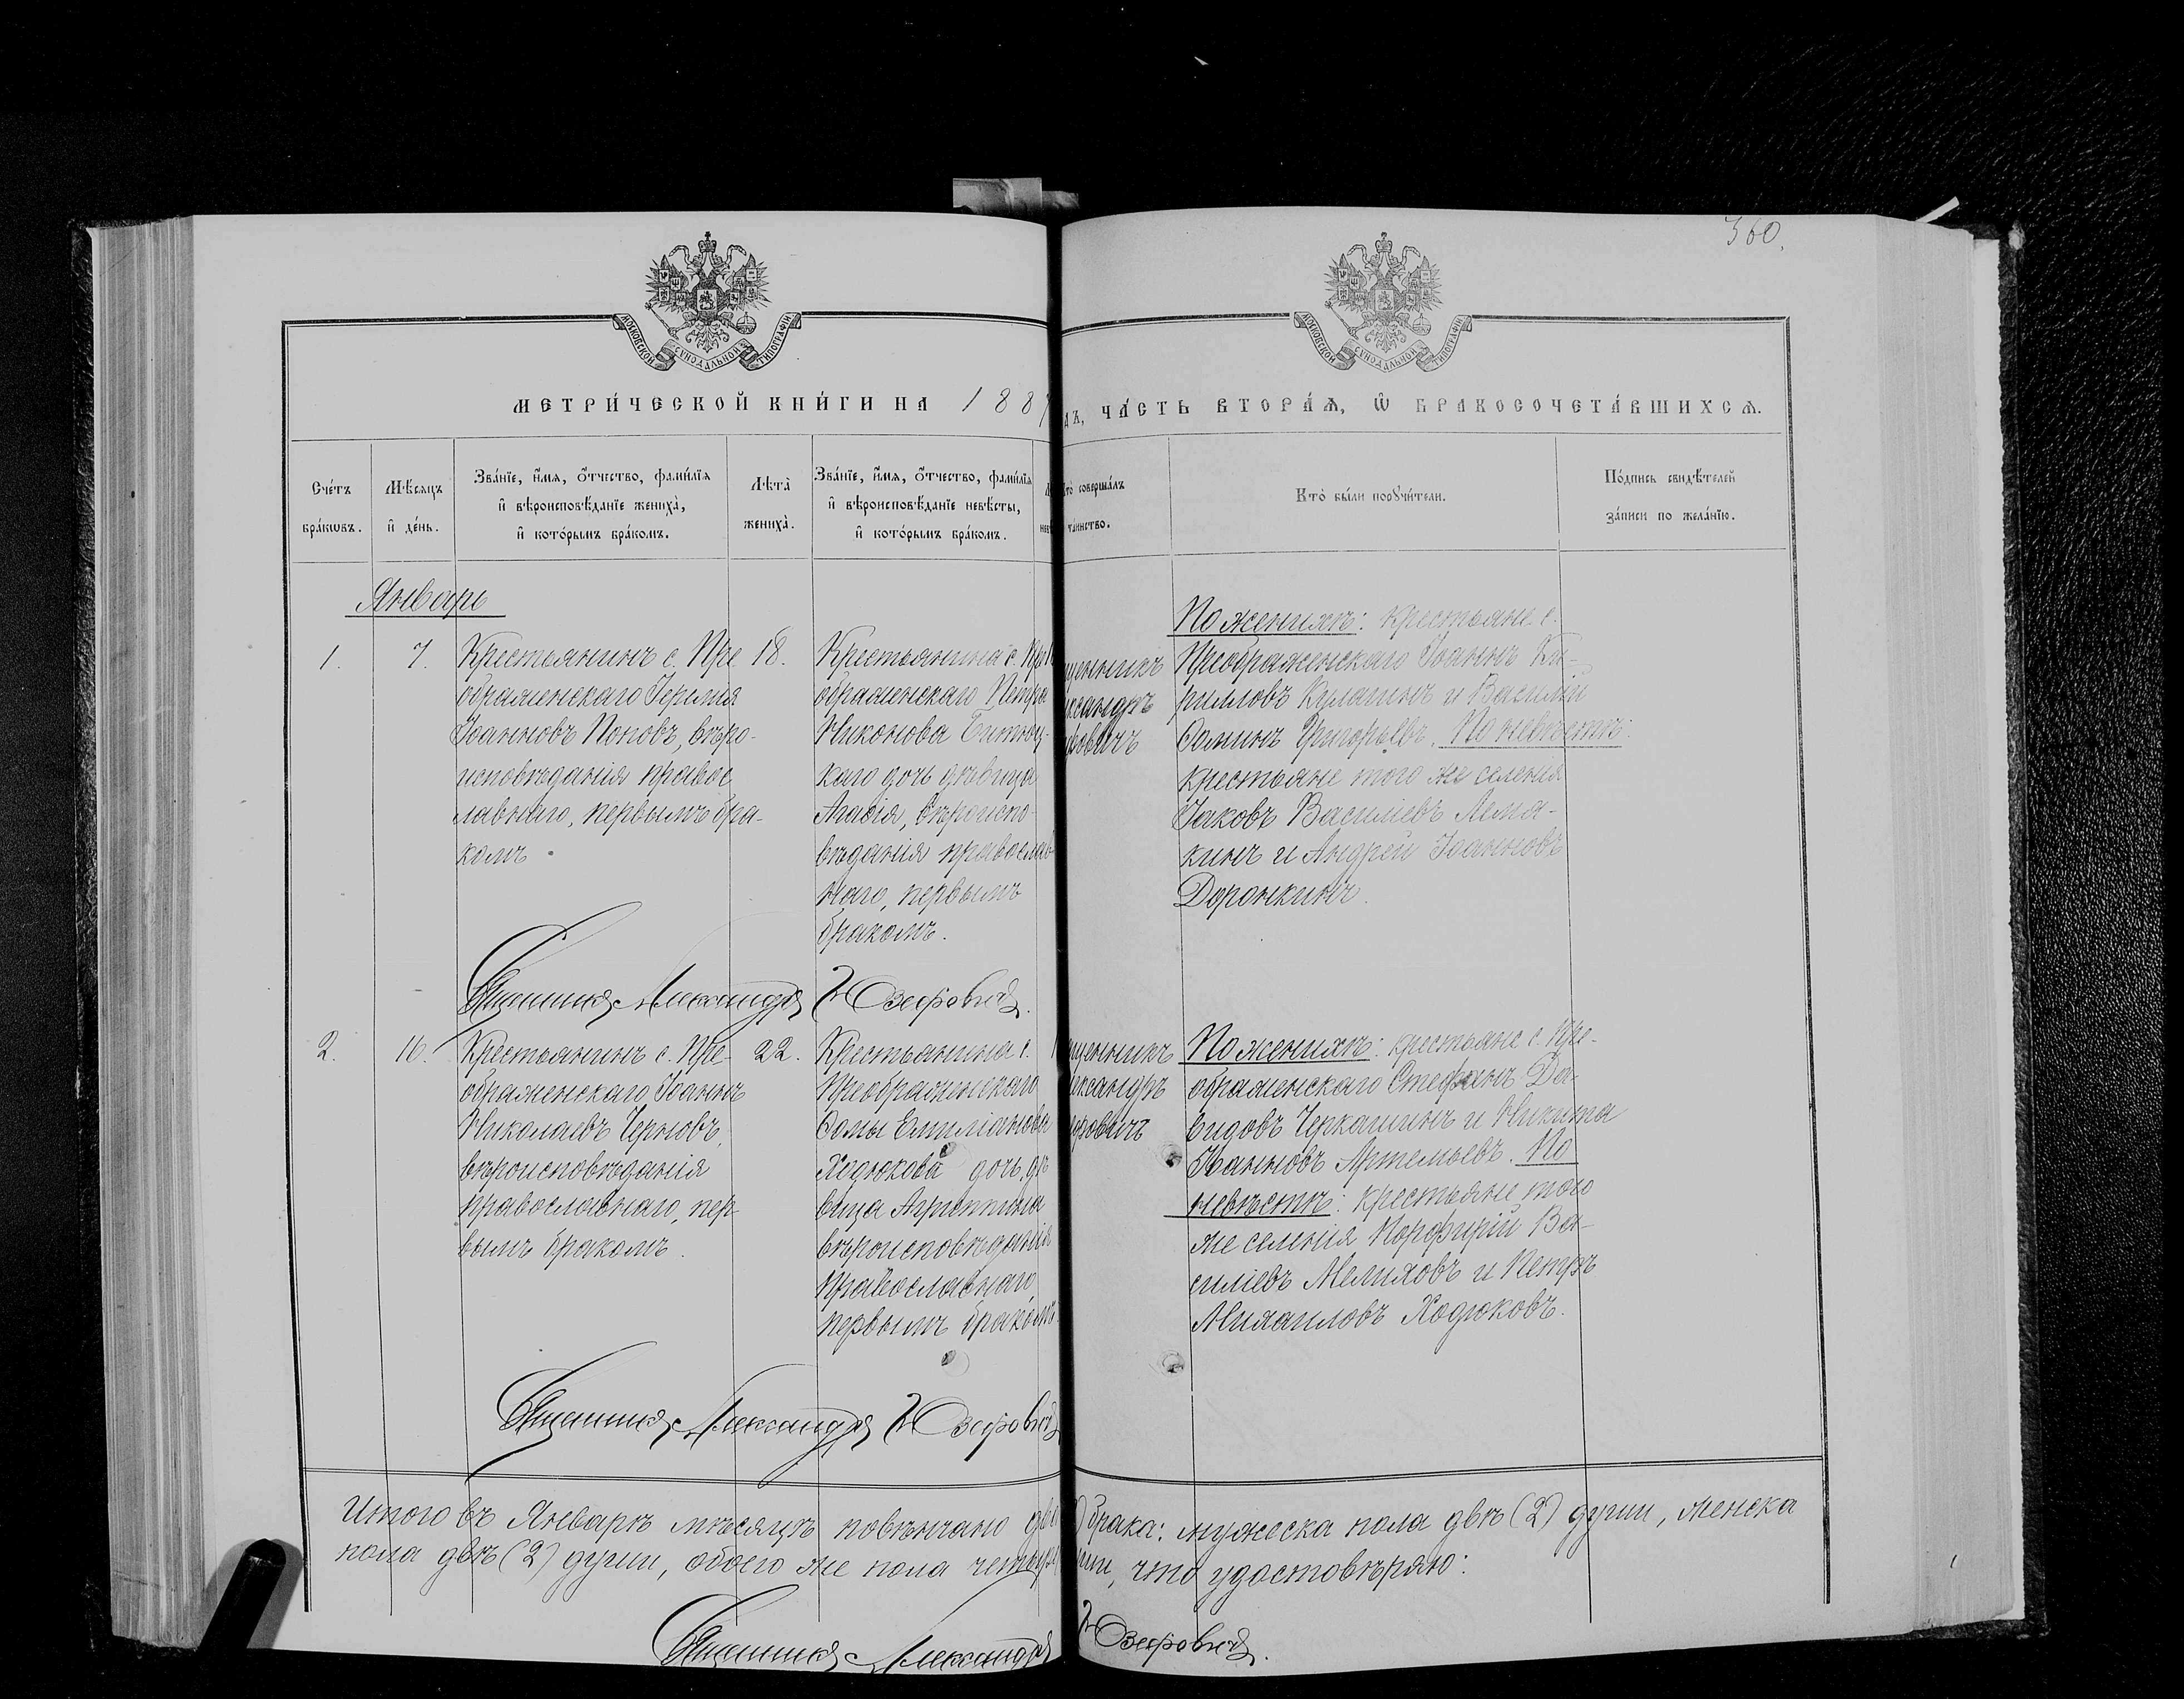 360.
МОСКОВСКОЙ СѴНОДАЛЬНОЙ ТИПОГРАФІИ
МОСКОВСКОЙ СѴНОДАЛЬНОЙ ТИПОГРАФІИ
МЕТРИ́ЧЕСКОЙ КНИ́ГИ НА 188
ЧА́СТЬ ВТОРА́Ѧ, Ѽ БРАКОСОЧЕТА́ВШИХСѦ.
Сче́тъ бра́кѡвъ.
Мѣ́сяцъ и҆ де́нь.
Зва́нїе, и҆́мѧ, ѻ҆́тчество, фами́лїѧ
и҆ вѣроисповѣ́данїе жениха̀,
и҆ кото́рымъ бра́комъ.
Лѣта̀ жениха̀.
Зва́нїе, и҆́мѧ, ѻ҆́тчество, фами́лїѧ
и҆ вѣроисповѣ́данїе невѣ́сты,
и҆ кото́рымъ бра́комъ.
совершáлъ
та́инство.
Кто̀ бы́ли порꙋчи́тели.
По́дпись свидѣ́телей
за́писи по жела́нїю.
Январь
1.
7.
Крестьянинъ с. Пре
ображенскаго Іеремія
Іоанновъ Поповъ, вѣро-
исповѣданія правос
лавнаго, первымъ бра-
комъ.
18.
Крестьянина с. Пр
ображенскаго Петра
Никонова
каго дочь дѣвица
Агафія, вѣроиспо-
вѣданія православ
наго, первымъ
бракомъ.
щенникъ
ександръ
ровичъ
По женихѣ: крестьяне с.
Преображенскаго Іоаннъ Ки-
рилловъ Кулагинъ и Василій
Ѳоминъ Григорьевъ. По невѣстѣ:
крестьяне того же селенія
Іаковъ Василіевъ Лемя-
кинъ и Андрей Іоанновъ
Доронкинъ.
Священникъ Александръ Юзефовичъ.
2.
16.
Крестьянинъ с. Пре-
ображенскаго Іоаннъ
Николаевъ Черновъ,
вѣроисповѣданія
православнаго, пер
вымъ бракомъ.
22.
Крестьянина с.
Преображенскаго
Ѳомы Емиліанова
Ходюкова дочь дѣ
вица Агриппина
вѣроисповѣданія
православнаго,
первымъ бракомъ
щенникъ
ександръ
ефовичъ
По женихѣ: крестьяне с. Пре-
ображенскаго Стефанъ Да-
видовъ Черкашинъ и Никита
Іоанновъ Артемьевъ. По
невѣстѣ: крестьяне того
же селенія Порфирій Ва-
силіевъ Мелиховъ и Петръ
Михаиловъ Ходюковъ.
Священникъ Александръ Юзефовичъ
Итого въ Январѣ мѣсяцѣ повѣнчано два брака: мужеска пола двѣ (2) души, женска
пола двѣ (2) души, обоего же пола четыре что удостовѣряю:
Священникъ Александръ Юзефовичъ.